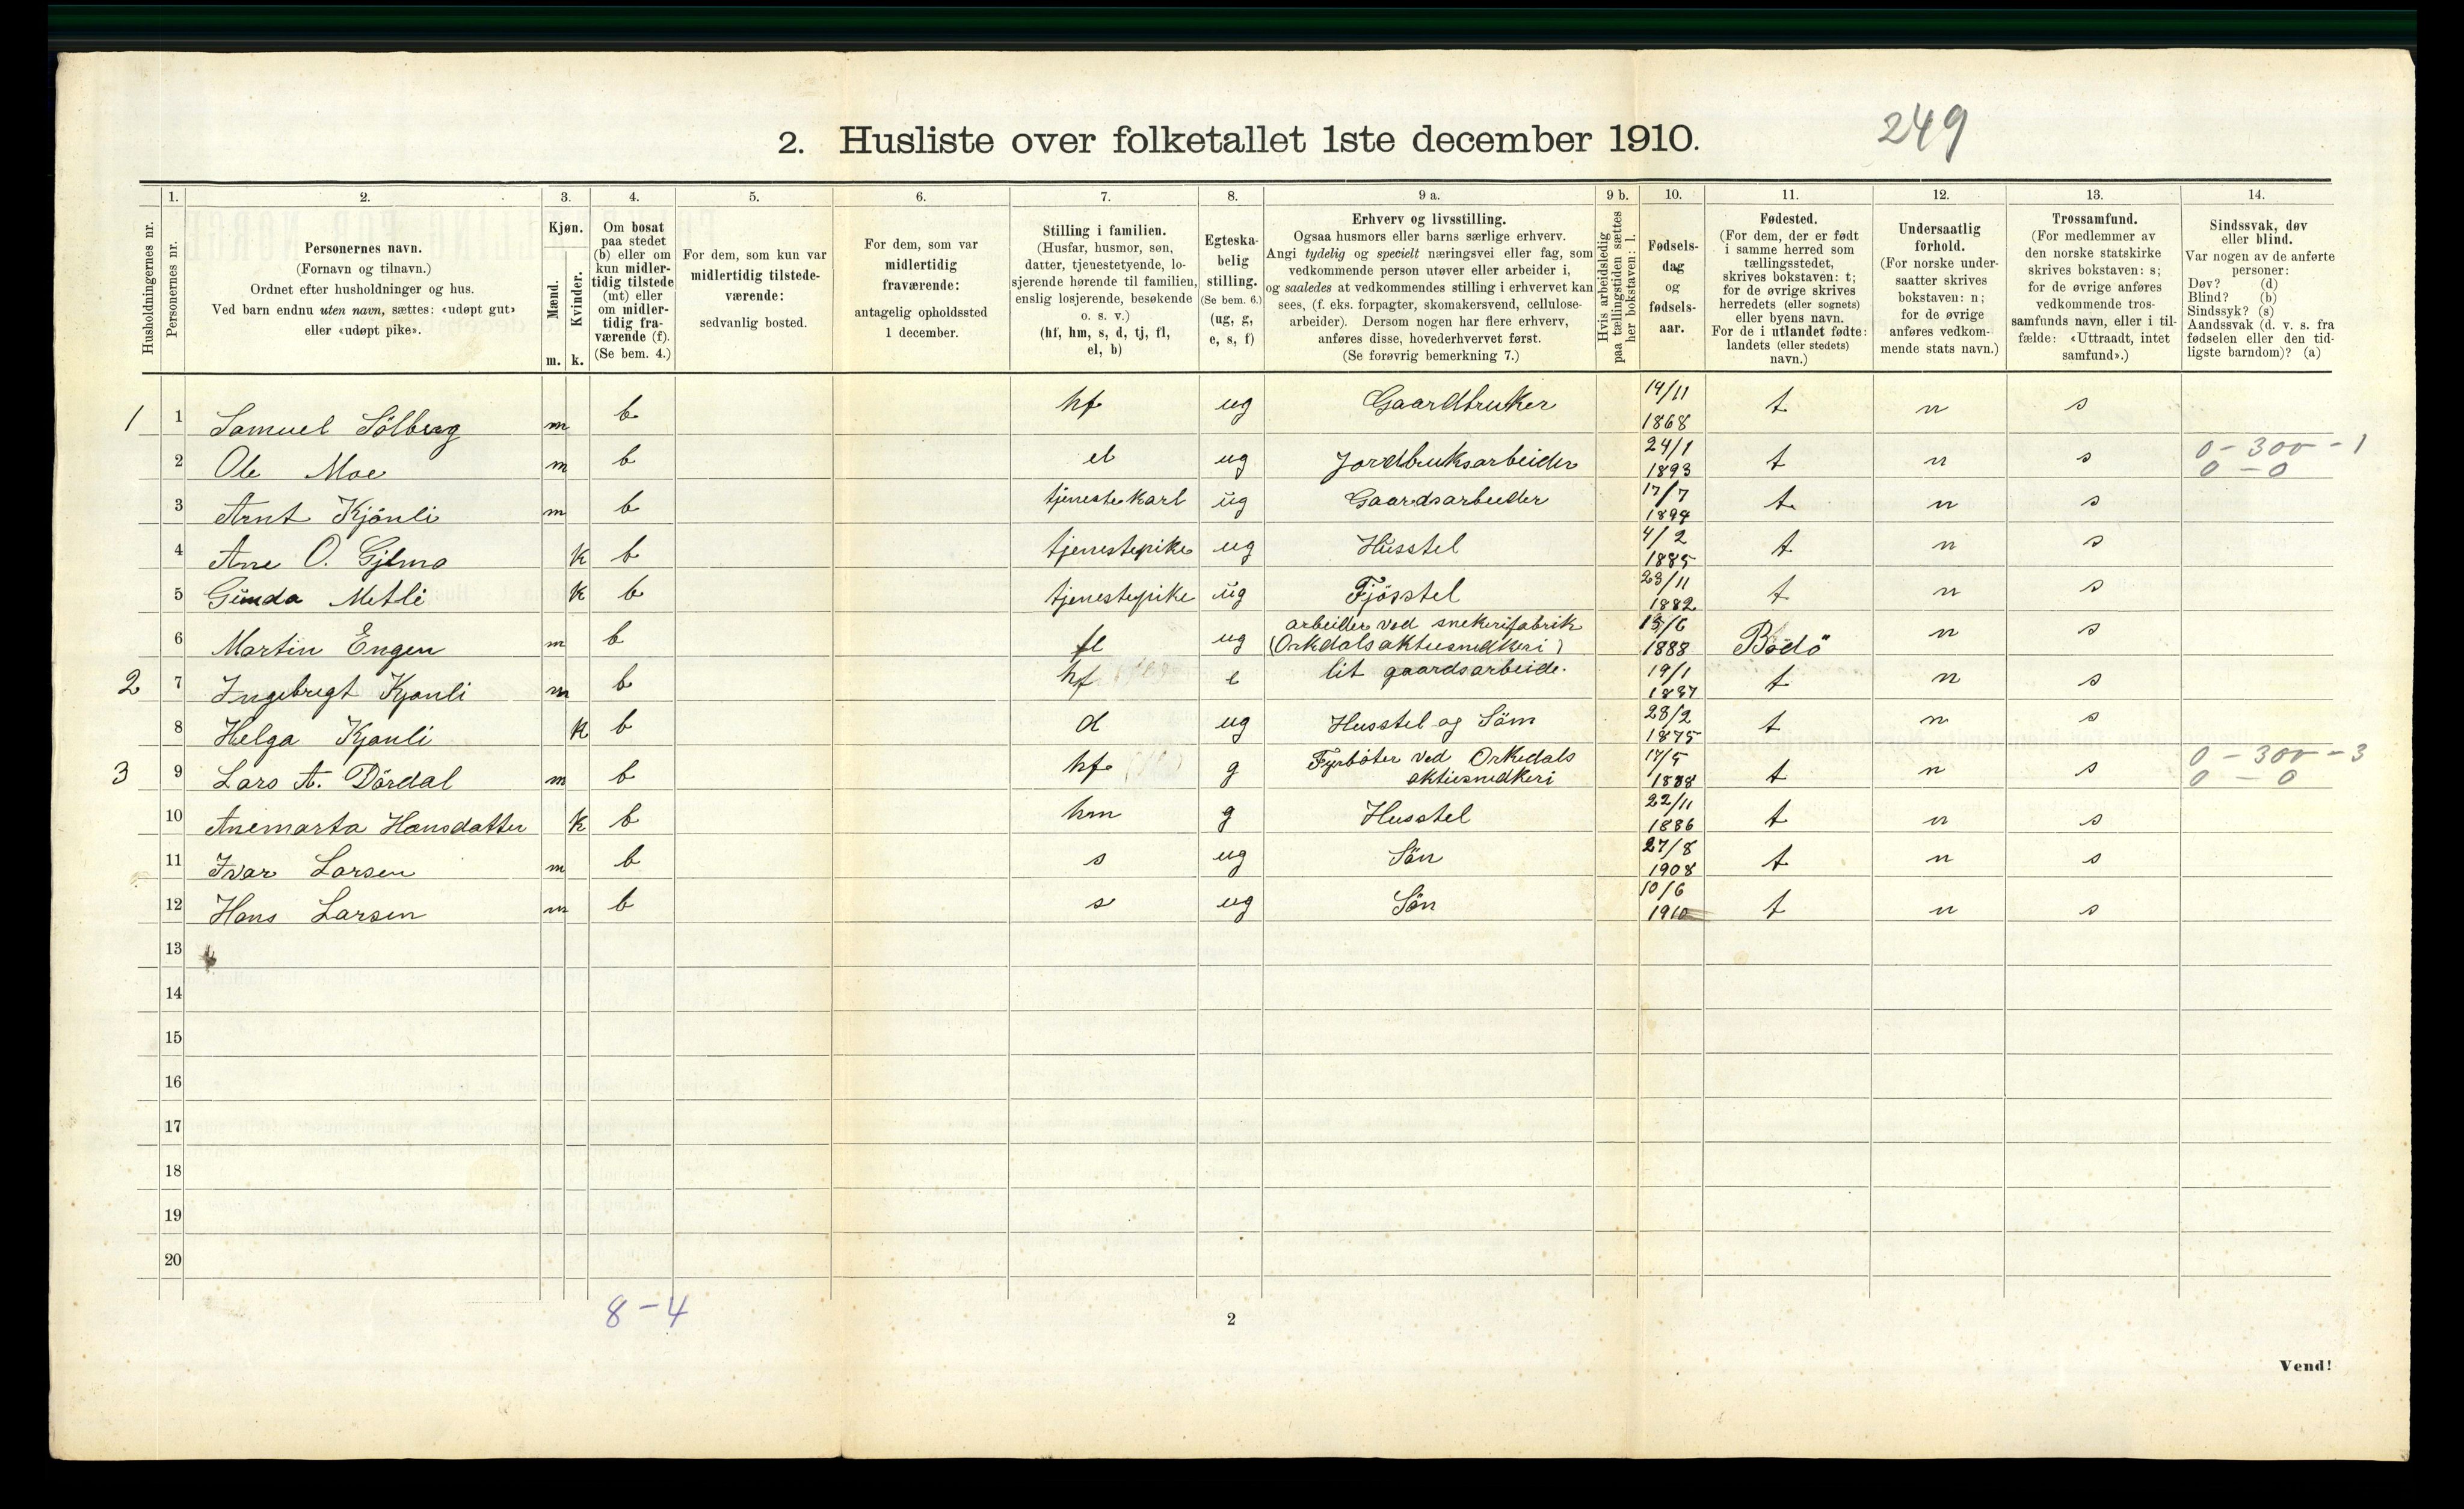 2. Husliste over folketallet 1ste december 1910.
249
Husholdningernes nr.
1.
Personernes nr.
2.
Personernes navn.
(Fornavn og tilnavn.)
Ordnet efter husholdninger og hus.
Ved barn endnu uten navn, sættes: «udøpt gut»
eller «udøpt pike».
3.
Kjøn.
Mænd.
Kvinder.
m. k.
4.
Om bosat
paa stedet
(b) eller om
kun midler-
tidig tilstede
(mt) eller
om midler-
tidig fra-
værende (f).
(Se bem. 4.)
5.
For dem, som kun var
midlertidig tilstede-
værende:
sedvanlig bosted.
6.
For dem, som var
midlertidig
fraværende:
antagelig opholdssted
1 december.
7.
Stilling i familien.
(Husfar, husmor, søn,
datter, tjenestetyende, lo-
sjerende hørende til familien,
enslig losjerende, besøkende
o. s. v.)
(hf, hm, s, d, tj, fl,
el, b)
8.
Egteska-
belig
stilling.
(Se bem. 6.)
(ug, g,
e, s, f)
9 a.
Erhverv og livsstilling.
Ogsaa husmors eller barns særlige erhverv.
Angi tydelig og specielt næringsvei eller fag, som
vedkommende person utøver eller arbeider i,
og saaledes at vedkommendes stilling i erhvervet kan
sees, (f. eks. forpagter, skomakersvend, cellulose-
arbeider). Dersom nogen har flere erhverv,
anføres disse, hovederhvervet først.
(Se forøvrig bemerkning 7.)
9 b.
Hvis arbeidsledig
paa tællingstiden sættes
her bokstaven: l.
10.
Fødsels-
dag
og
fødsels-
aar.
11.
Fødested.
(For dem, der er født
i samme herred som
tællingsstedet,
skrives bokstaven: t;
for de øvrige skrives
herredets (eller sognets)
eller byens navn.
For de i utlandet fødte:
landets (eller stedets)
navn.)
12.
Undersaatlig
forhold.
(For norske under-
saatter skrives
bokstaven: n;
for de øvrige
anføres vedkom-
mende stats navn.)
13.
Trossamfund.
(For medlemmer av
den norske statskirke
skrives bokstaven: s;
for de øvrige anføres
vedkommende tros-
samfunds navn, eller i til-
fælde: «Uttraadt, intet
samfund».)
14.
Sindssvak, døv
eller blind.
Var nogen av de anførte
personer:
Døv? (d)
Blind? (b)
Sindssyk? (s)
Aandssvak (d. v. s. fra
fødselen eller den tid-
ligste barndom)? (a)
1 1 Samuel Sölberg m b hf ug Gaardbruker 14/11 1868 t n s
2 Ole Moe m b el ug Jordbruksarbeider 24/1 1893 t n s 0 - 300 - 1
0 - 0
3 Arnt Kjönli m b tjenestekarl ug Gaardsarbeider 17/7 1894 t n s
4 Ane O. Gjelmo k b tjenestepike ug Husstel 4/2 1885 t n s
5 Gunda Metli k b tjenestepike ug Fjösstel 23/11 1882 t n s
6 Martin Engen m b fl ug arbeider ved snekerifabrik
(Orkdals aktiesnedkeri) 13/6 1888 Bodö n s
2 7 Ingebregt Kjonli m b hf e lit gaardsarbeide. 19/1 1837 t n s
8 Helga Kjonli k b d ug Husstel og Söm 28/2 1875 t n s
3 9 Lars A. Dördal m b hf g Fyrböter ved Orkedals
aktiesnedkeri 17/5 1888 t n s 0 - 300 - 3
0 - 0
10 Anemarta Hansdatter k b hm g Husstel 22/11 1886 t n s
11 Ivar Larsen m b s ug Sön 27/8 1908 t n s
12 Hans Larsen m b s ug Sön 10/6 1910 t n s
13
14
15
16
17
18
19
20
8 - 4
2
Vend!